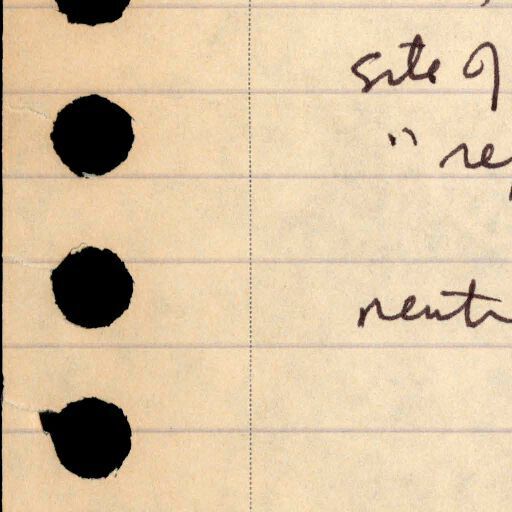 site of
" re
neut